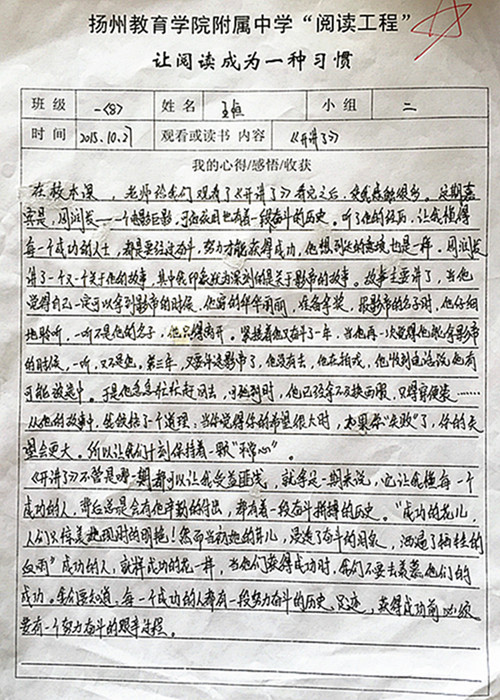 扬州教育学院附属中学“阅读工程”
让阅读成为一种习惯
班级 一<8> 姓名 王恒 小组 二
时间 2015.10.27 观看或读书 内容 《开讲了》
我的心得/感悟/收获
在校本课，老师给我们观看了《开讲了》看完之后，我感触很多。这期嘉
宾是，周润发——一个电影巨影，于此我因也有着一段奋斗的历史。听了他的经历，让我懂得
每一个成功的人士，都是要经过奋斗，努力才能获得成功，他想到达的意境也是一样。周润发
讲了一个又一个关于他的故事，其中我印象最为深刻的是关于影帝的故事。故事主要讲了，当他
觉得自己一定可以拿到影帝的时候，他穿的华华丽丽，准备拿奖，报影帝的名字时，他仔细
地聆听，一听不是他的名字，他只得离开。紧接着他又奋斗了一年，当他再一次觉得他能拿影帝
的时候，一听，又不是他。第三年，又要评选影帝了，他没有去，他在拍戏，他收到电话说他有
可能被选中。于是他急急忙忙赶回去，可赶到时，他已经拿不及换西服，只得穿便装……
从他的故事中，我领悟了一个道理：当你觉得你的希望很大时，如果你“失败”了，你的失
望会更大。所以让我们时刻保持着一颗“平常心”。
《开讲了》不管是哪一期都可以让我受益匪浅，就拿这一期来说，它让我懂每一个
成功的人，背后总是会有他辛勤的付出，都有着一段奋斗拼搏的历史。“成功的花儿，
人们只惊羡她现时的明艳！然而当初她的芽儿，浸透了奋斗的泪泉，洒遍了牺牲的
血雨”成功的人，就好像成功的花一样，当他们获得成功时，我们不要去羡慕他们的
成功。我们要知道，每一个成功的人都有一段努力奋斗的历史、足迹，获得成功前必须
要有一个努力奋斗的艰辛过程。